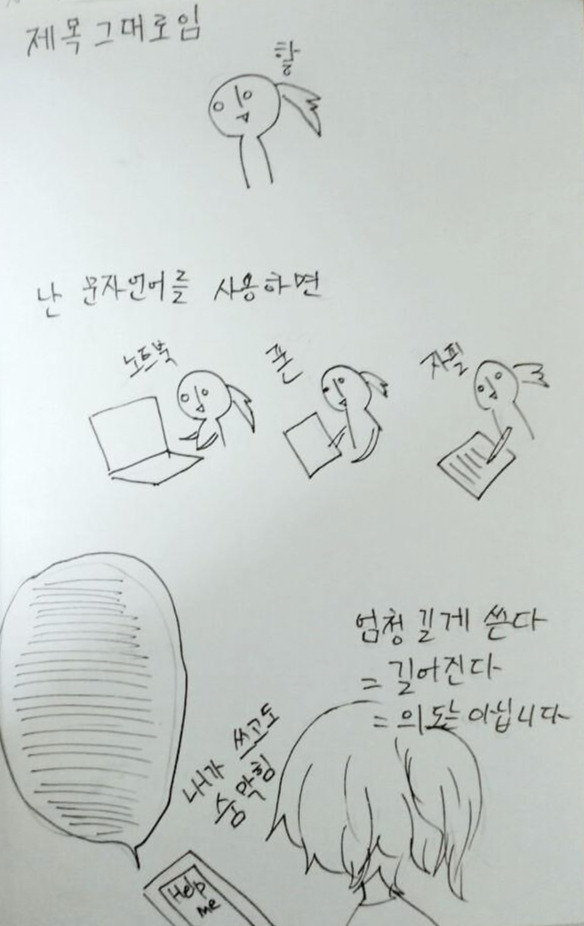 제목 그대로임
할
난 문자언어를 사용하면
노트북
폰
자필
엄청 길게 쓴다
= 길어진다
= 의도는 아닙니다
내가 쓰고도
숨 막힘
Help
me